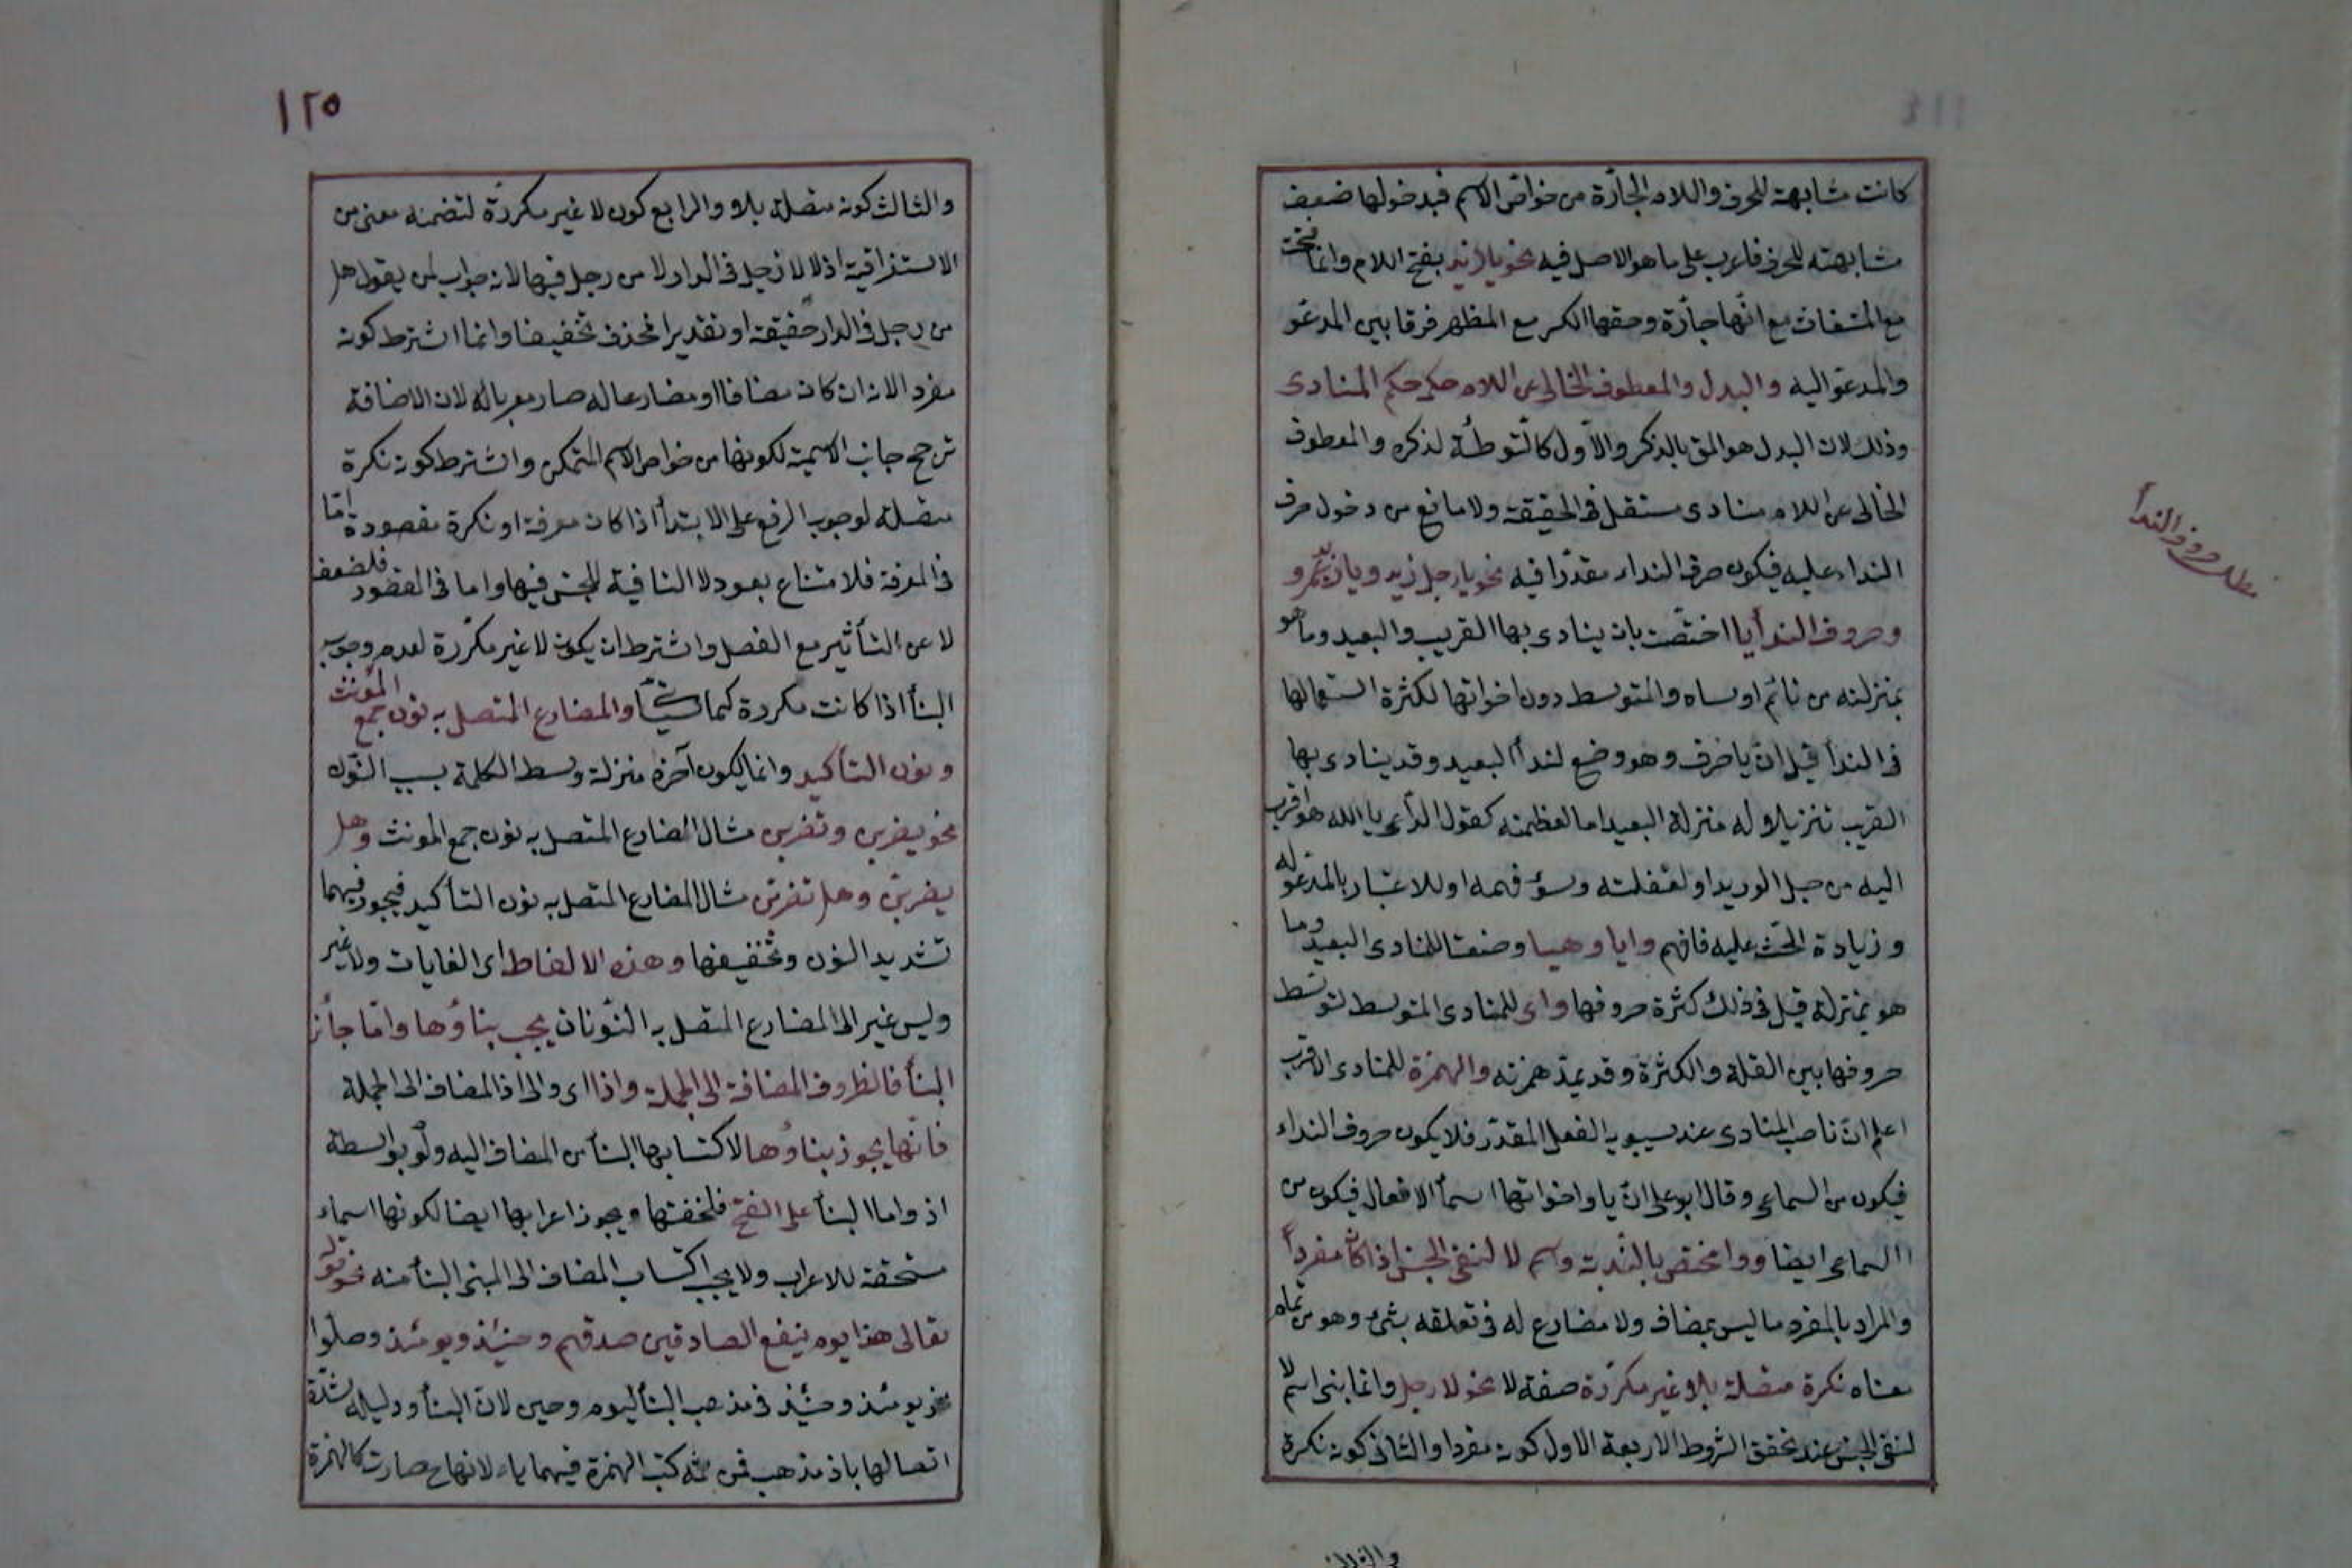 كانت مشابهة للحرف واللام الجارّة من خواصّ الاسم فبدخولها ضعيف
مشابهته للحرف فاعرب على ما هو الاصل فيه نحو يا لزيد بفتح اللام وانما فتحت
مع المستغاث مع انّها جارّة وحقها الكسر مع المظهر فرقا بين المدعوّ
والمدعوّ اليه والبدل والمعطوف الخالى عن اللام حكمه حكم المنادى
وذلك لان البدل هو المق بالذكر والأول كالتوطئة لذكره والمعطوف
الخالى عن اللام منادى مستقل فى الحقيقة ولا مانع من دخول حرف
النداء عليه فيكون حرف النداء مقدّرا فيه نحو يا رجل زيد ويا زيد وعمرو
وحروف الندأ يا اختصّت بان ينادى بها القريب والبعيد وما هو
بمنزلته من نائم او ساه والمتوسط دون اخواتها لكثرة استعمالها
فى الندأ قيل ان يا حرف وهو وضع لندأ البعيد وقد ينادى بها
القريب تنزيلا له منزلة البعيد اما لعظمته كقول الدّاعى يا الله هو اقرب
اليه من حبل الوريد او لغفلته وسؤ فهمه او للاعتبار بالمدعوّ له
وزيادة الحّث عليه فافهم وايا وهيا وضعتا للمنادى البعيد وما
هو بمنزلة قيل فى ذلك كثرة حروفها واى للمنادى المتوسط لتوسّط
حروفها بين القلة والكثرة وقد يمدّ همزته والهمزة للمنادى الاقرب
اعلم انّ ناصب المنادى عند سيبويه الفعل المقدّر فلا يكون حروف النداء
فيكون من السماعى وقال ابو على انّ يا واخواتها اسمأ الافعال فيكون من
السماعى ايضا ووا مختص بالنّدبة واسم لا لنفى الجنس اذا كان مفرداً
والمراد بالمفرد ما ليس بمضاف ولا مضارع له فى تعلقه بشئ وهو من تمام
معناه نكرة متصلة بلا غير مكرّرة صفة لا نحو لا رجل وانما بنى اسم لا
لنفى الجنس عند تحقق الشروط الاربعة الاول كونه مفردا والثانى كونه نكرة
مطلب حروف الندأ
١٢٥
والثالث كونه متصلة بلا والرابع كون لا غير مكررة لتضمنه معنى من
الاستغراقية اذ لا رجل فى الدار لا من رجل فيها لانه جواب لمن يقول هل
من رجل فى الدار حقيقة او تقديرا فحذف تخفيفا وانما اشترط كونه
مفردا لانه ان كان مضافا او مضارعا له صار معربا له لان الاضافة
ترجح جانب الاسمية لكونها من خواص الاسم المتمكن واشترط كونه نكرة
متصلة لوجوب الرفع على الابتدأ اذا كان معرفة او نكرة مقصودة امّا
فى المعرفة فلامتناع بعود لا النافية للجنس فيها واما فى المقصود فلضعف
لا عن التأثير مع الفصل واشترط ان يكون لا غير مكرّرة لعدم وجوب
البنأ اذا كانت مكررة كما سيئاً والمضارع المتصل به نون جمع المؤنث
ونون التأكيد وانما لكون آخره منزلة وسط الكلمة بسبب النّون
نحو يضربن وتضربن مثال المضارع المتصل به نون جمع المونث وهل
يضربنّ وهل تضربنّ مثال المضارع المتصل به نون التأكيد فيجوز فيهما
تشديد النون وتخفيفها وهذه الالفاظ اى الغايات ولا غير
وليس غير الى المضارع المتصل به النّونان يجب بناؤها وامّا جأئز
البنأ فالظروف المضافة الى الجملة واذا اى والى اذ المضاف الى الجملة
فانّها يجوز بناؤها لاكتسابها البنأ من المضاف اليه ولو بواسطة
اذ واما البنأ على الفتح فلخفتها ويجوز اعرابها ايضا لكونها اسماء
مستحقة للاعراب ولا يجب اكتساب المضاف الى المبنى البنأ منه نحو قوله
تعالى هذا يوم ينفع الصادقين صدقهم وحينئذ ويومئذ وصلوا
نحو يومئذ وحينئذ فى مذهب البنأ ليوم وحين لان البنأ ودليله شدّة
اتصالها باذ مذهب فمن ثمه كتب الهمزة فيهما ياء لانها ح صارت كالهمزة